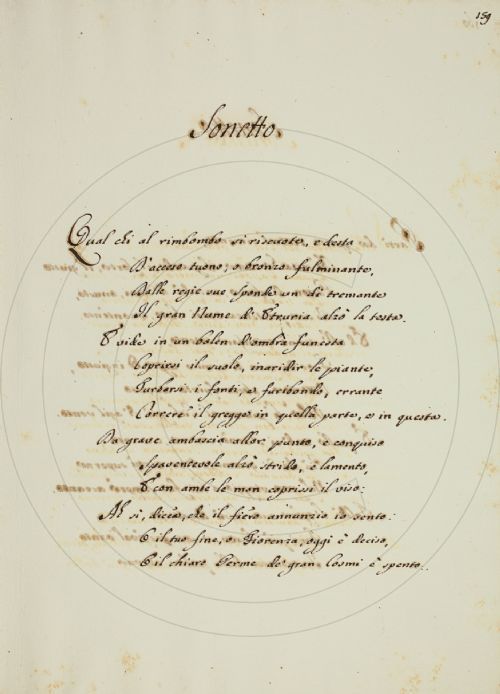 159
Sonetto.
Qual chi al rimbombo si riscuote, e desta
D'acceso tuono, o bronzo fulminante,
Dalle regie sue sponde un dì tremante
Il gran Nume d'Etruria alzò la testa.
E vide in un balen d'ombra funesta
Coprirsi il suolo, inaridir le piante,
Turbarsi i fonti, e furibondo, errante
Correre il gregge in quella parte, e in questa.
Da grave ambascia allor punto, e conquiso
Spaventevole alzò strido, e lamento,
E con ambe le man coprissi il viso:
Ah sì, dicea, che il fiero annunzio io sento:
E il tuo fine, o Fiorenza, oggi è deciso,
E il chiaro Germe de' gran Cosmi è spento.